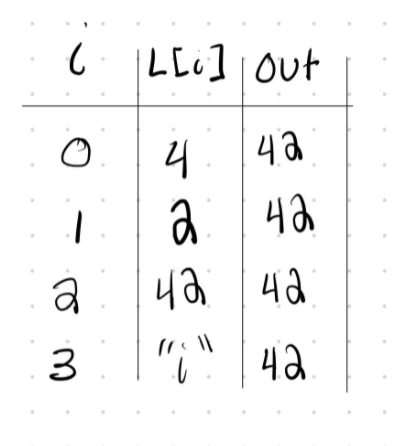 i L[i] out
0 4 42
1 2 42
2 42 42
3 "i" 42